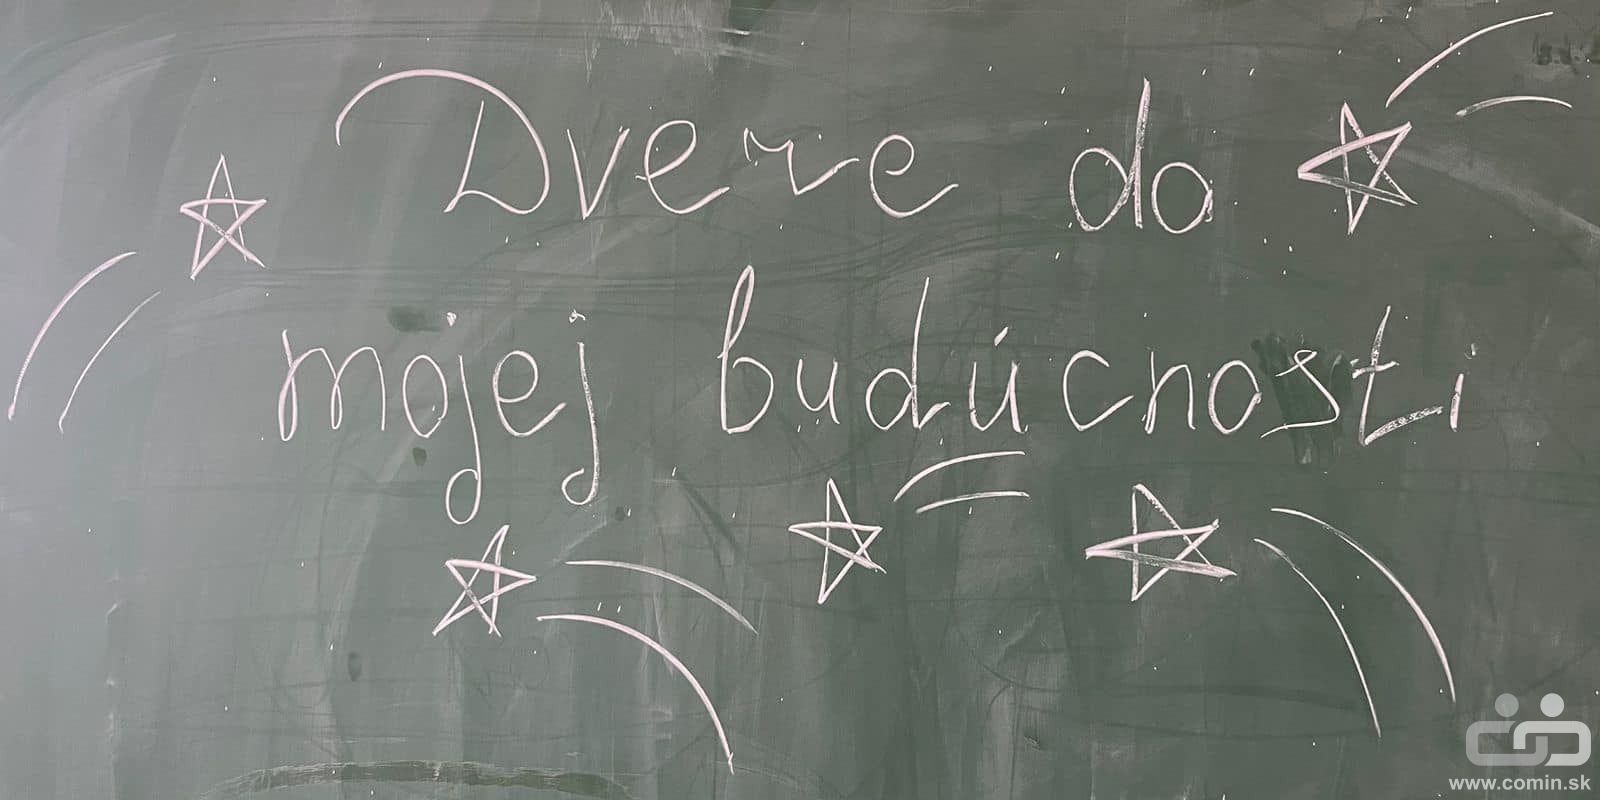 Dvere do
mojej budúcnosti
www.comin.sk